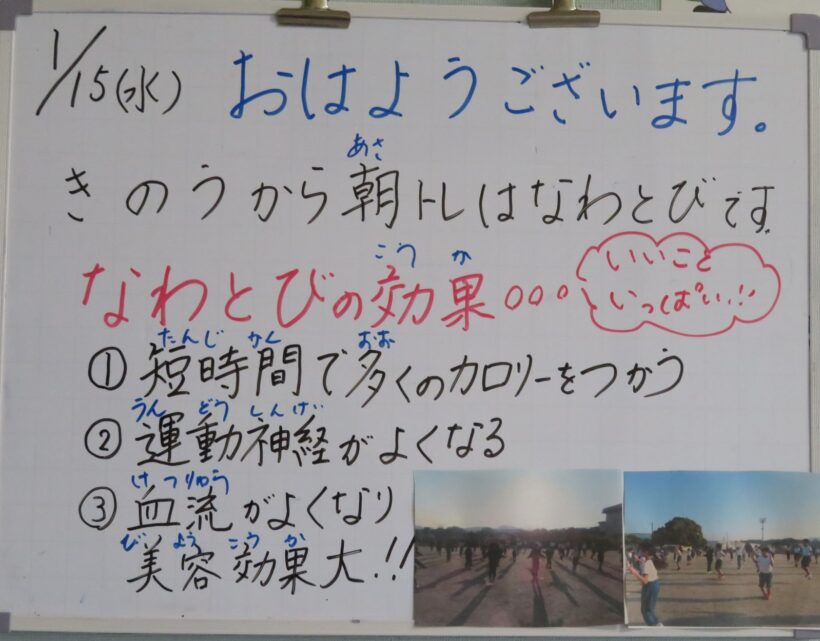 1/15(水) おはようございます。
あさ
きのうから朝トレはなわとびです
こうか
なわとびの効果。。。
いいこと
いっぱい!!
たんじかん おお
①短時間で多くのカロリーをつかう
うんどうしんけい
②運動神経がよくなる
けつりゅう
③血流がよくなり
びようこうか
美容効果大!!